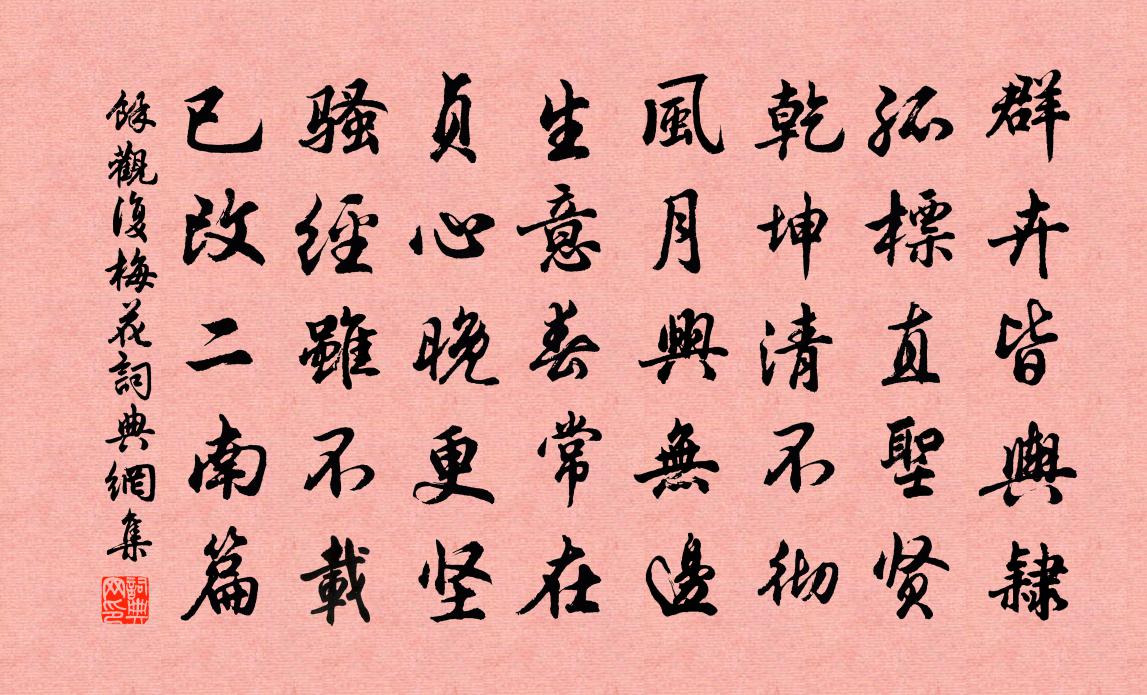 群卉皆輿隸
孤標直聖贤
乾坤清不彻
風月興無邊
生意春常在
贞心晚更坚
騷經雖不載
已改二南篇
餘觀復梅花詞典網集
詞典网印